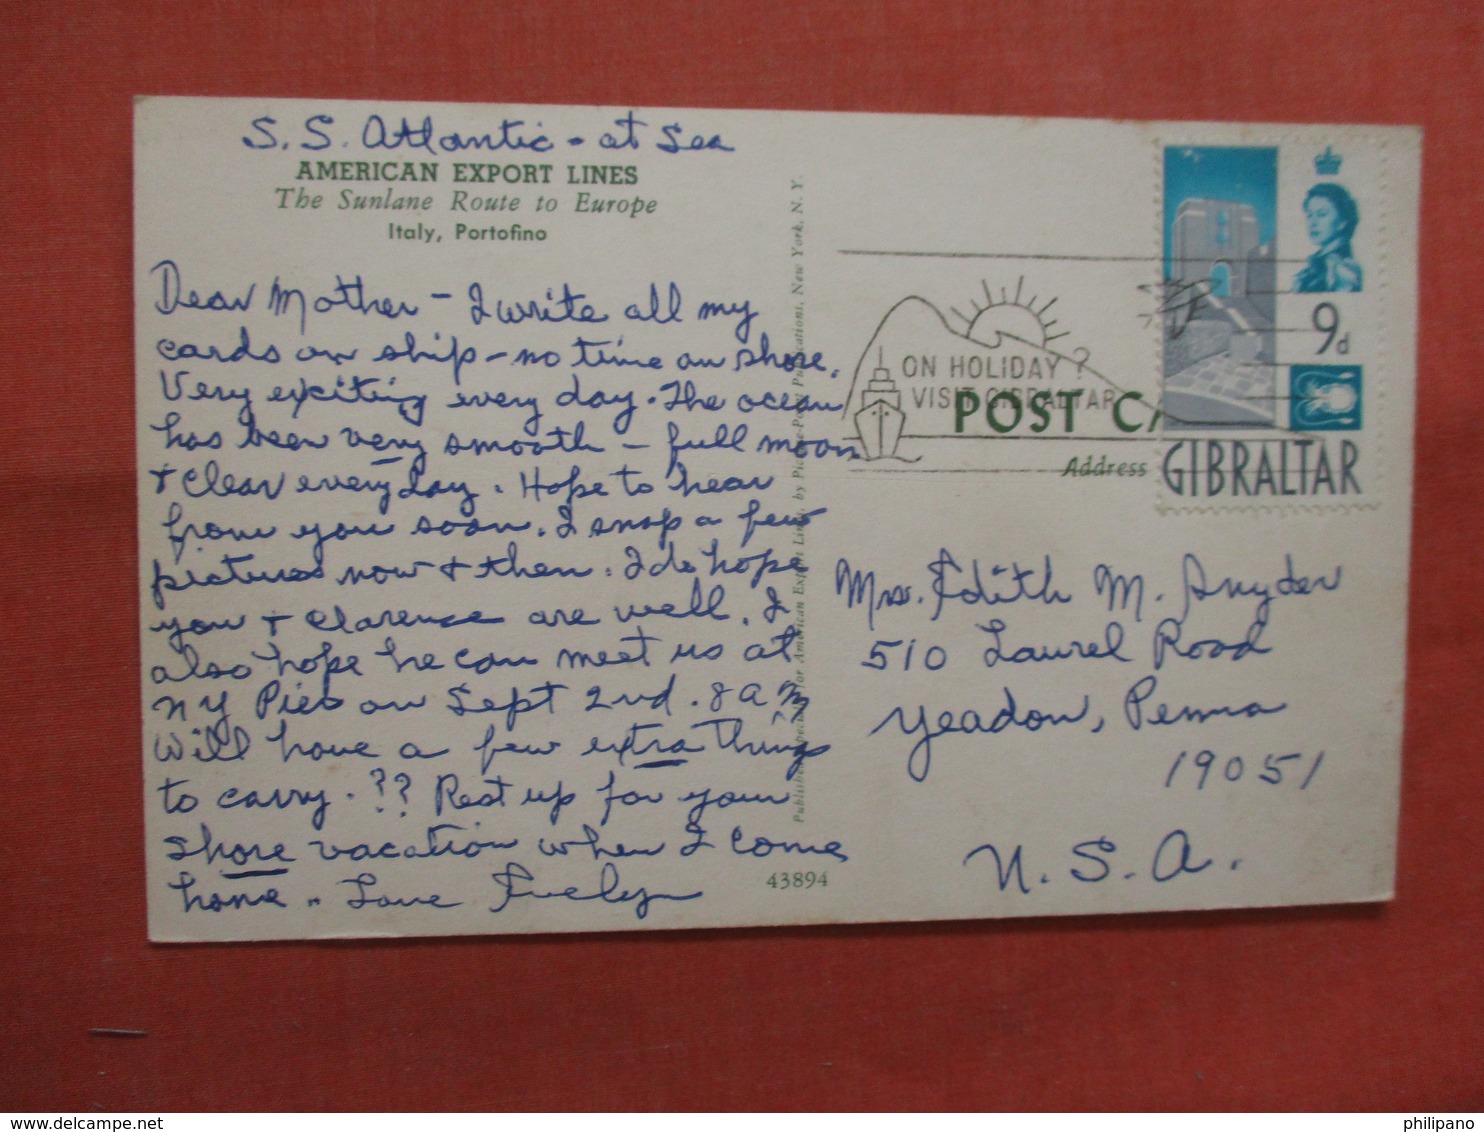 S.S. Atlantic - at Sea
AMERICAN EXPORT LINES
The Sunlane Route to Europe
Italy, Portofino
Dear Mother - I write all my
cards on ship - no time on shore.
Very exciting every day. The ocean
has been very smooth - full moon
+ clear every day. Hope to hear
from you soon. I snap a few
pictures now + then. I do hope
you + Clarence are well. I
also hope he can meet us at
NY Pier on Sept 2nd. 8 am
Will have a few extra things
to carry. ?? Rest up for your
shore vacation when I come
home. Love Evelyn
43894
Published for American Export Lines, by Picture-Post Publications, New York, N. Y.
ON HOLIDAY ?
VISIT GIBRALTAR
POST CA
Address
9d
GIBRALTAR
Mrs. Edith M. Snyder
510 Laurel Road
Yeadon, Penna
19051
U.S.A.
www.delcampe.net
philipano